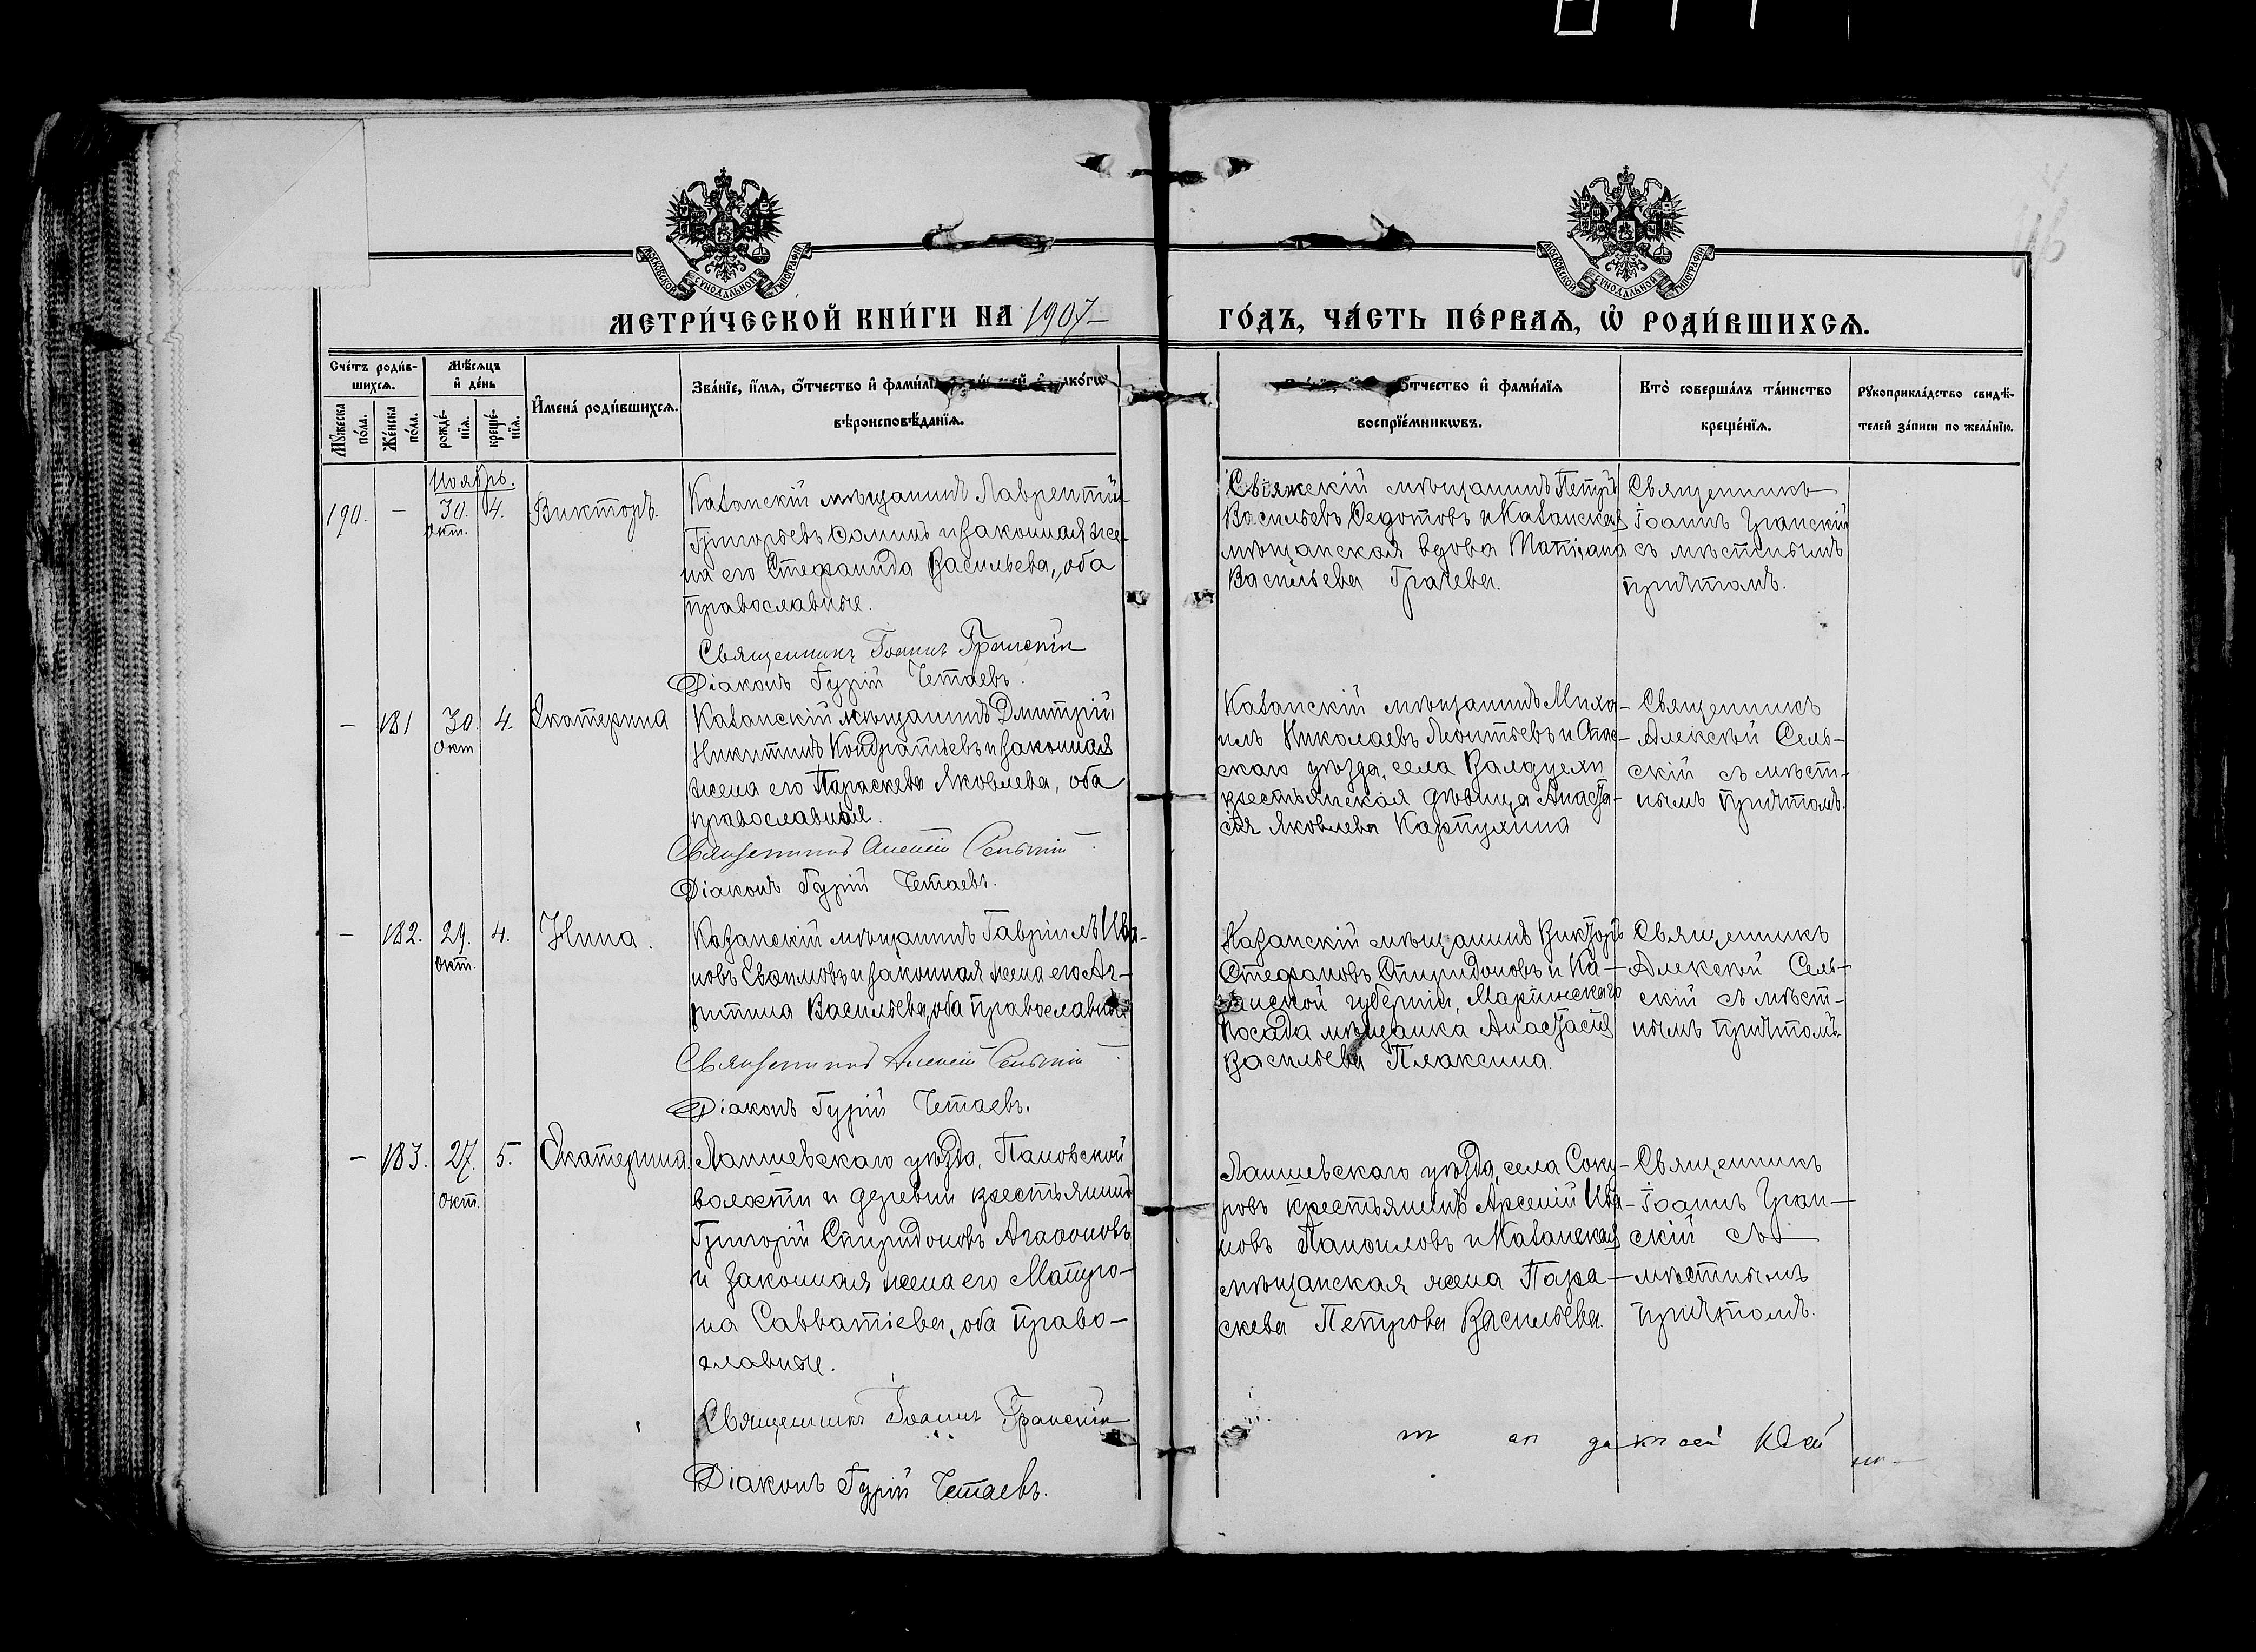 МЕТРИ́ЧЕСКОЙ КНИ́ГИ НА 1907
ГО́ДЪ, ЧА́СТЬ ПЕ́РВАѦ, Ѡ҆ РОДИ́ВШИХСѦ.
Сче́тъ роди́в-
шихсѧ.
Мꙋ́жеска по́ла.
Же́нска по́ла.
Мѣ́сѧцъ
и҆ де́нь
рожде́-
нїѧ.
креще́-
нїѧ.
И҆мена̀ роди́вшихсѧ.
Зва́нїе, и҆́мѧ, ѻ҆́тчество и҆ фами́лїѧ
како́гѡ
вѣроисповѣ́данїѧ.
ѻ҆́тчество и҆ фами́лїѧ
воспрїе́мникѡвъ.
Кто̀ соверша́лъ та́инство
креще́нїѧ.
Рꙋкоприкла́дство свидѣ́-
телей за́писи по жела́нїю.
Ноябрь.
190.
–
30.
окт.
4.
Викторъ.
Казанскій мѣщанинъ Лаврентій
Григорьевъ Ѳоминъ и законная же-
на его Стефанида Васильева, оба
православные.
Священникъ Іоаннъ Гранскій
Діаконъ Гурій Четаевъ.
Свіяжскій мѣщанинъ Петръ
Васильевъ Ѳедотовъ и Казанская
мѣщанская вдова Татіана
Васильева Грачева.
Священникъ
Іоаннъ Гранскій
съ мѣстнымъ
причтомъ.
–
181
30.
окт
4.
Екатерина
Казанскій мѣщанинъ Дмитрій
Никитинъ Кондратьевъ и законная
жена его Параскева Яковлева, оба
православные.
Священникъ Алексій Сельскій
Діаконъ Гурій Четаевъ.
Казанскій мѣщанинъ Миха-
илъ Николаевъ Леонтьевъ и Спас-
скаго уѣзда, села
крестьянская дѣвица Анаста-
сія Яковлева Карпухина
Священникъ
Алексѣй Сель-
скій съ мѣст-
нымъ причтомъ.
–
182.
29.
окт.
4.
Нина.
Казанскій мѣщанинъ Гавріилъ Ива-
новъ Евѳимовъ и законная жена его Аг-
рипина Васильева, оба православные
Священникъ Алексій Сельскій
Діаконъ Гурій Четаевъ.
Казанскій мѣщанинъ Викторъ
Стефановъ Спиридоновъ и Ка-
занской губерніи, Маріинскаго
посада мѣщанка Анастасія
Васильева Плаксина.
Священникъ
Алексѣй Сель-
скій съ мѣст-
нымъ причтомъ.
–
183.
27.
окт.
5.
Екатерина.
Лаишевскаго уѣзда, Пановской
волости и деревни крестьянинъ
Григорій Спиридоновъ Агаѳоновъ
и законная жена его Матро-
на Савватіева, оба право-
славные.
Священникъ Іоаннъ Гранскій
Діаконъ Гурій Четаевъ.
Лаишевскаго уѣзда, села Соку-
ровъ крестьянинъ Арсеній Ива-
новъ Панѳиловъ и Казанская
мѣщанская жена Пара-
скева Петрова Васильева.
Священникъ
Іоаннъ Гран-
скій съ
мѣстнымъ
причтомъ.